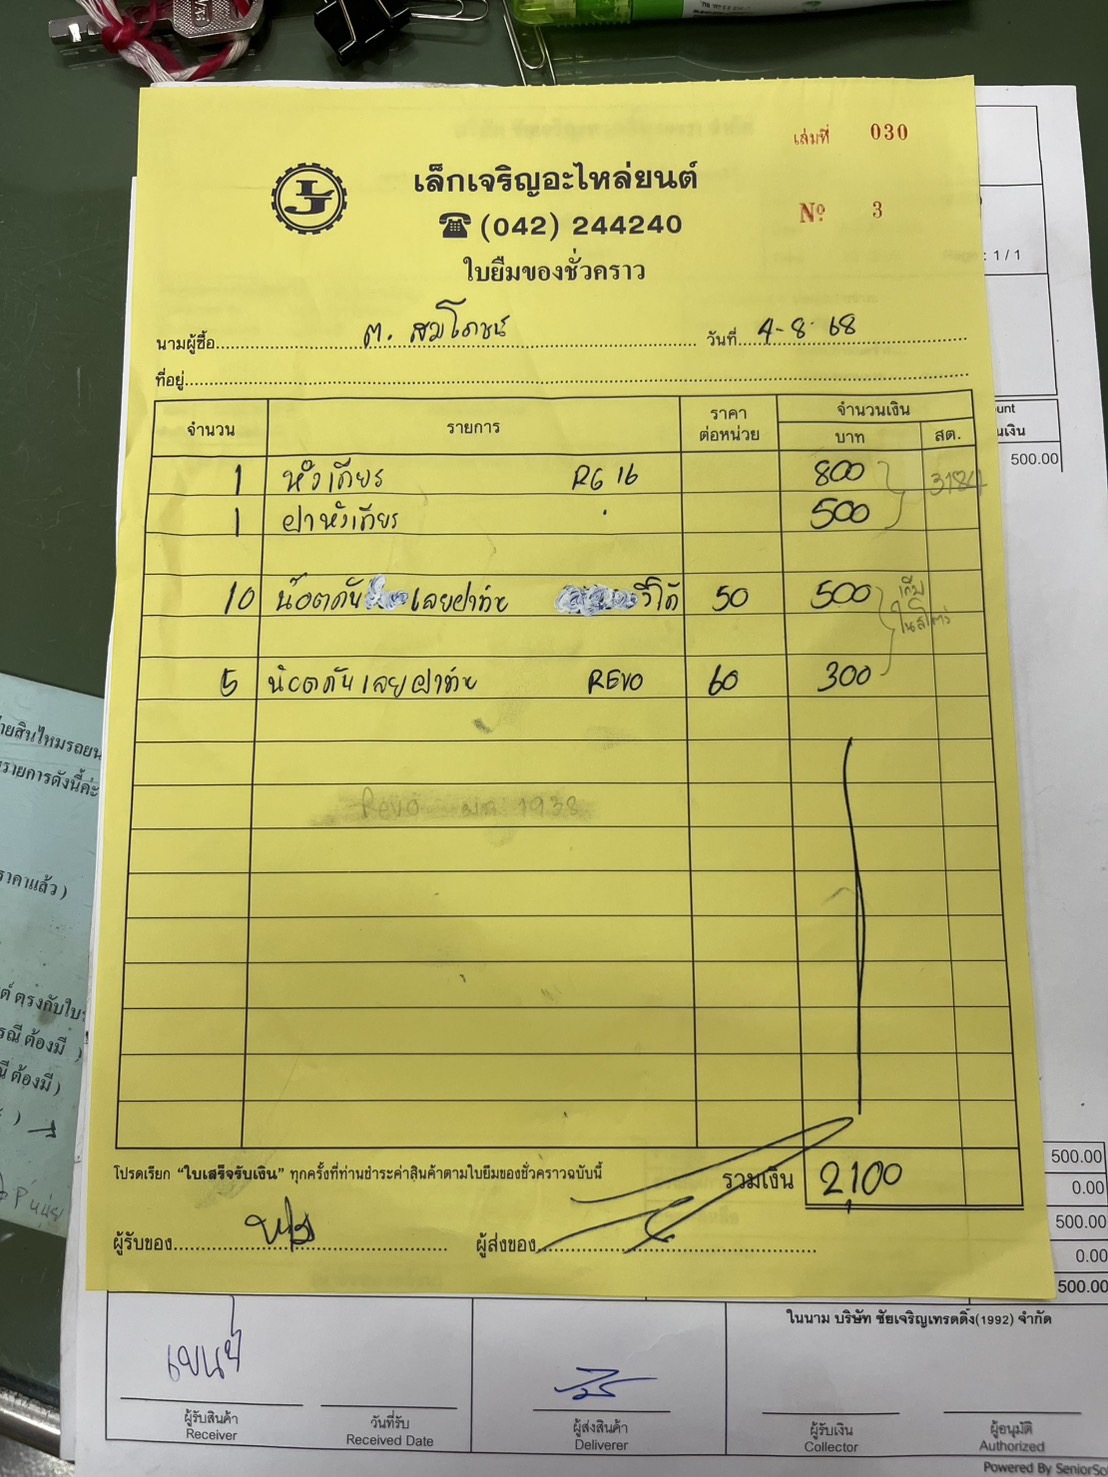 เล่มที่ 030
เล็กเจริญอะไหล่ยนต์
(042) 244240
Nº 3
ใบยืมของชั่วคราว
: 1 / 1
นามผู้ซื้อ ต. สมโภชน์ วันที่ 4-8-68
ที่อยู่
จำนวน รายการ ราคาต่อหน่วย จำนวนเงิน บาท สต.
1 หัวเกียร RG 16 800 3184
1 ฝาหัวเกียร 500
10 น๊อตดัน เลยฝาท้าย วีโก้ 50 500 เก็บ
ในสโตร์
5 น๊อตดันเลยฝาท้าย REVO 60 300
Revo 1938
โปรดเรียก “ใบเสร็จรับเงิน” ทุกครั้งที่ท่านชำระค่าสินค้าตามใบยืมของชั่วคราวฉบับนี้ รวมเงิน 2,100
ผู้รับของ ผู้ส่งของ
unt
นเงิน
500.00
500.00
0.00
500.00
0.00
500.00
ายสินไหมรถยน
รายการดังนี้ค่ะ
ราคาแล้ว )
ต์ ตรงกับใบ
รณี ต้องมี )
นี ต้องมี )
ในนาม บริษัท ชัยเจริญเทรดดิ้ง(1992) จำกัด
ผู้รับสินค้า วันที่รับ ผู้ส่งสินค้า ผู้รับเงิน ผู้อนุมัติ
Receiver Received Date Deliverer Collector Authorized
Powered By SeniorSo